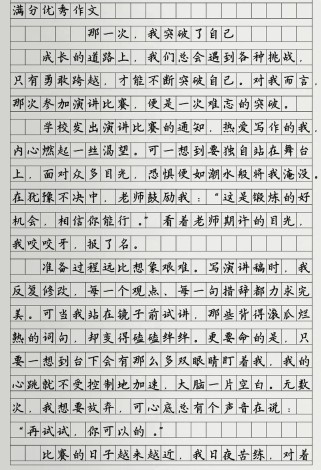 满分优秀作文
那一次，我突破了自己
成长的道路上，我们总会遇到各种挑战，
只有勇敢跨越，才能不断突破自己。对我而言，
那次参加演讲比赛，便是一次难忘的突破。
学校发出演讲比赛的通知，热爱写作的我，
内心燃起一丝渴望。可一想到要独自站在舞台
上，面对众多目光，恐惧便如潮水般将我淹没。
在犹豫不决中，老师鼓励我：“这是锻炼的好
机会，相信你能行。”看着老师期许的目光，
我咬咬牙，报了名。
准备过程远比想象艰难。写演讲稿时，我
反复修改，每一个观点、每一句措辞都力求完
美。可当我站在镜子前试讲，那些背得滚瓜烂
熟的词句，却变得磕磕绊绊。更要命的是，只
要一想到台下会有那么多双眼睛盯着我，我的
心跳就不受控制地加速，大脑一片空白。无数
次，我想要放弃，可心底总有个声音在说：
“再试试，你可以的。”
比赛的日子越来越近，我日夜苦练，对着